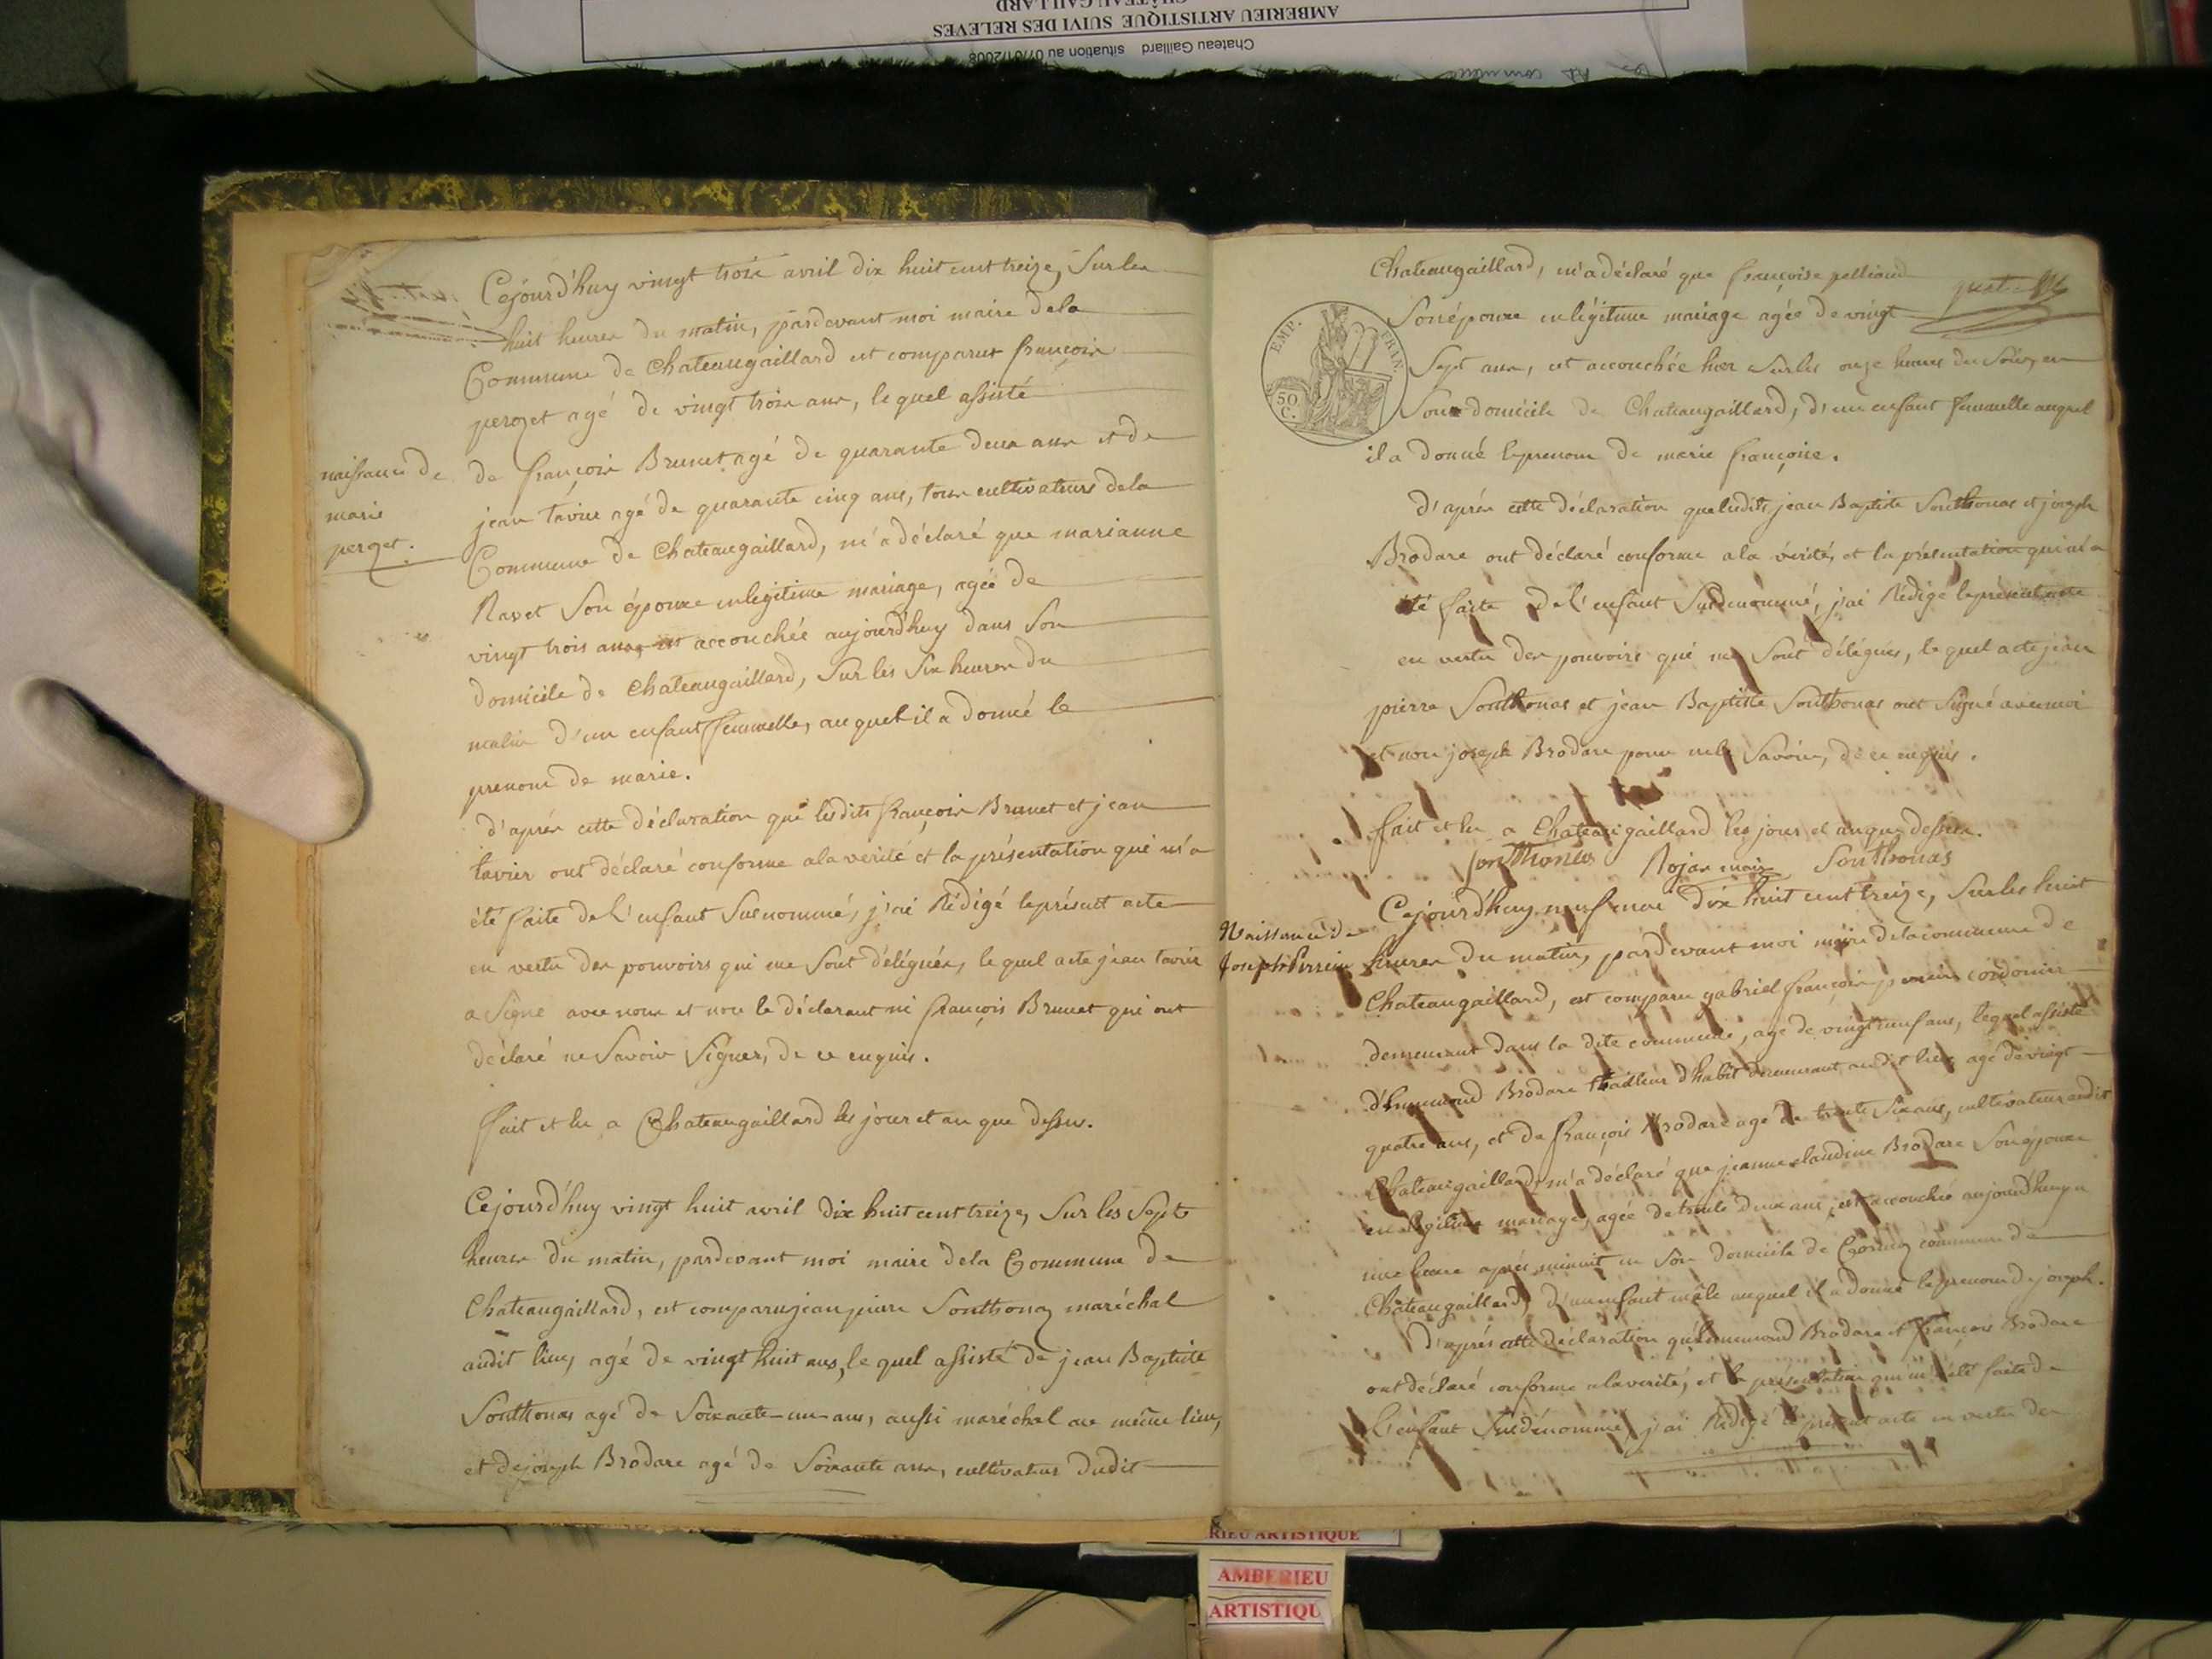 CHÂTEAU GAILLARD
AMBERIEU ARTISTIQUE SUIVI DES RELEVES
Chateau Gaillard situation au 07/01/2008
Cejourd'huy vingt trois avril dix huit cent treize, Sur les
huit heures du matin, pardevant moi maire dela
Commune de Chateaugaillard est comparut françois
perozet agé de vingt trois ans, lequel assisté
de françois Brunet agé de quarante deux ans et de
jean tavier agé de quarante cinq ans, tous cultivateurs dela
Commune de Chateaugaillard, m'a déclaré que marianne
Ravet Son épouse en légitime mariage, agée de
vingt trois ans, est accouchée aujourd'huy dans Son
domicile de Chateaugaillard, Sur les Six heures du
matin d'un enfant femmelle, auquel il a donné le
prenom de marie.
naissance de
marie
perozet.
d'après cette déclaration que lesdits françois Brunet et jean
tavier ont déclaré conforme ala vérité et la présentation qui m'a
été faite de l'enfant Susnommé, j'ai Rédigé leprésent acte
en vertu des pouvoirs qui me Sont délégués, le quel acte jean tavier
a Signé avec nous et non le déclarant ni françois Brunet qui ont
déclaré ne Savoir Signer, de ce enquis.
fait et lu a Chateaugaillard les jour et an que dessus.
Cejourd'huy vingt huit avril dix huit cent treize, Sur les Sept
heures du matin, pardevant moi maire dela Commune de
Chateaugaillard, est comparu jean pierre Sonthonaz maréchal
audit lieu, agé de vingt huit ans, le quel assisté de jean Baptiste
Sonthonas agé de Soixante-un-ans, aussi maréchal au même lieu,
et de joseph Brodare agé de Soixante ans, cultivateur dudit
Chateaugaillard, m'a déclaré que françoise pelliand
Son épouse en légitime mariage agée de vingt
Sept ans, est accouchée hier Sur les onze heures du Soir, en
Son domicile de Chateaugaillard, d'un enfant femmelle auquel
il a donné leprenom de marie françoise.
EMP. FRAN.
50
C.
d'après cette déclaration que lesdits jean Baptiste Sonthonas et joseph
Brodare ont déclaré conforme ala vérité, et la présentation qui m'a
été faite de l'enfant Susdenommé, j'ai Rédigé leprésent acte
en vertu des pouvoirs qui me Sont délégués, le quel acte jean
pierre Sonthonas et jean Baptiste Sonthonas ont Signé avec moi
et non joseph Brodare pour ne le Savoir, de ce enquis.
fait et lu a Chateaugaillard les jour et an que dessus.
Sonthonas Rojat maire Sonthonas
Naissance de
Joseph Perrin
Cejourd'huy neuf mai dix huit cent treize, Sur les huit
heures du matin, pardevant moi maire dela commune de
Chateaugaillard, est comparu gabriel françois perrin cordonier
demeurant dans la dite commune, agé de vingt neuf ans, lequel assisté
d'hummond Brodare tailleur d'habit demeurant audit lieu agé de vingt
quatre ans, et de françois Brodare agé de trente Six ans, cultivateur audit
Chateaugaillard, m'a déclaré que jeanne claudine Brodare Son épouse
en légitime mariage, agée de trente deux ans, est accouchée aujourd'huy a
une heure après minuit en Son domicile de Cormoz commune de
Chateaugaillard, d'un enfant mâle auquel il a donné leprenom de joseph.
D'après cette déclaration qu'hummond Brodare et françois Brodare
ont déclaré conforme ala verité, et la présentation qui m'a été faite de
l'enfant Susdénommé, j'ai Rédigé le présent acte en vertu des
RIEU ARTISTIQUE
AMBERIEU
ARTISTIQU